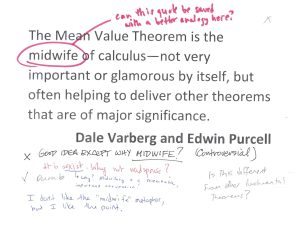 can this quote be saved
with a better analogy here?
x
The Mean Value Theorem is the
midwife of calculus—not very
important or glamorous by itself, but
often helping to deliver other theorems
that are of major significance.
Dale Varberg and Edwin Purcell
x GOOD IDEA EXCEPT WHY MIDWIFE? (Controversial)
It is sexist. Why not
I don't like the "midwife" metaphor,
but I like the point.
Is this different
from other fundamental
theorems?